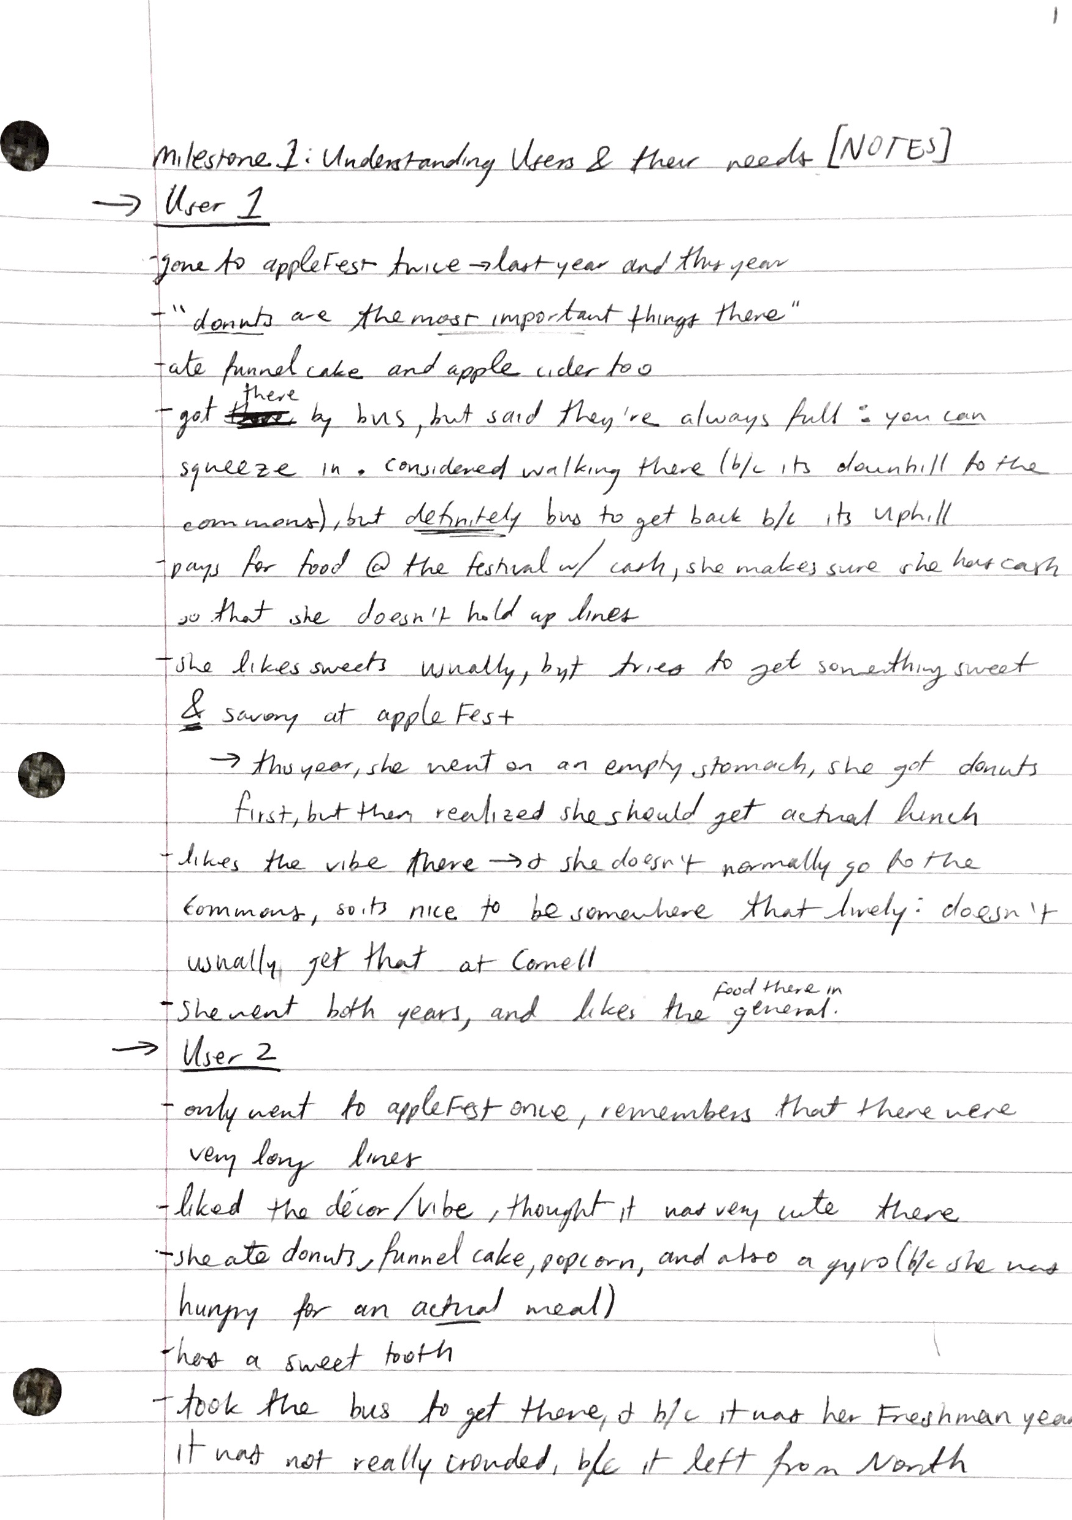 1
Milestone 1: Understanding Users & their needs [NOTES]
→ User 1
-gone to appleFest twice → last year and this year
-"donuts are the most important things there"
-ate funnel cake and apple cider too
there
-got by bus, but said they're always full : you can
squeeze in. considered walking there (b/c its downhill to the
commons), but definitely bus to get back b/c its uphill
-pays for food @ the festival w/ cash, she makes sure she has cash
so that she doesn't hold up lines
-she likes sweets usually, byt tries to get something sweet
& savory at appleFest
→ this year, she went on an empty stomach, she got donuts
first, but then realized she should get actual lunch
-likes the vibe there → & she doesn't normally go to the
commons, so its nice to be somewhere that lively: doesn't
usually get that at Cornell
food there in
-she went both years, and likes the general.
→ User 2
-only went to appleFest once, remembers that there were
very long lines
-liked the décor/vibe, thought it was very cute there
-she ate donuts, funnel cake, popcorn, and also a gyro (b/c she was
hungry for an actual meal)
-has a sweet tooth
-took the bus to get there, & b/c it was her Freshman year
it was not really crowded, b/c it left from North